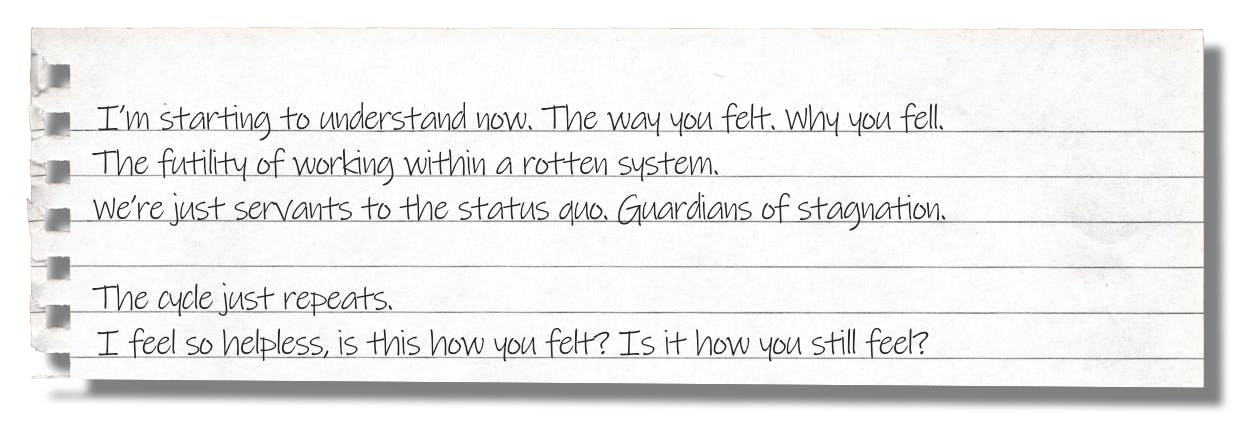 I'm starting to understand now. The way you felt. Why you fell.
The futility of working within a rotten system.
We're just servants to the status quo. Guardians of stagnation.
The cycle just repeats.
I feel so helpless, is this how you felt? Is it how you still feel?